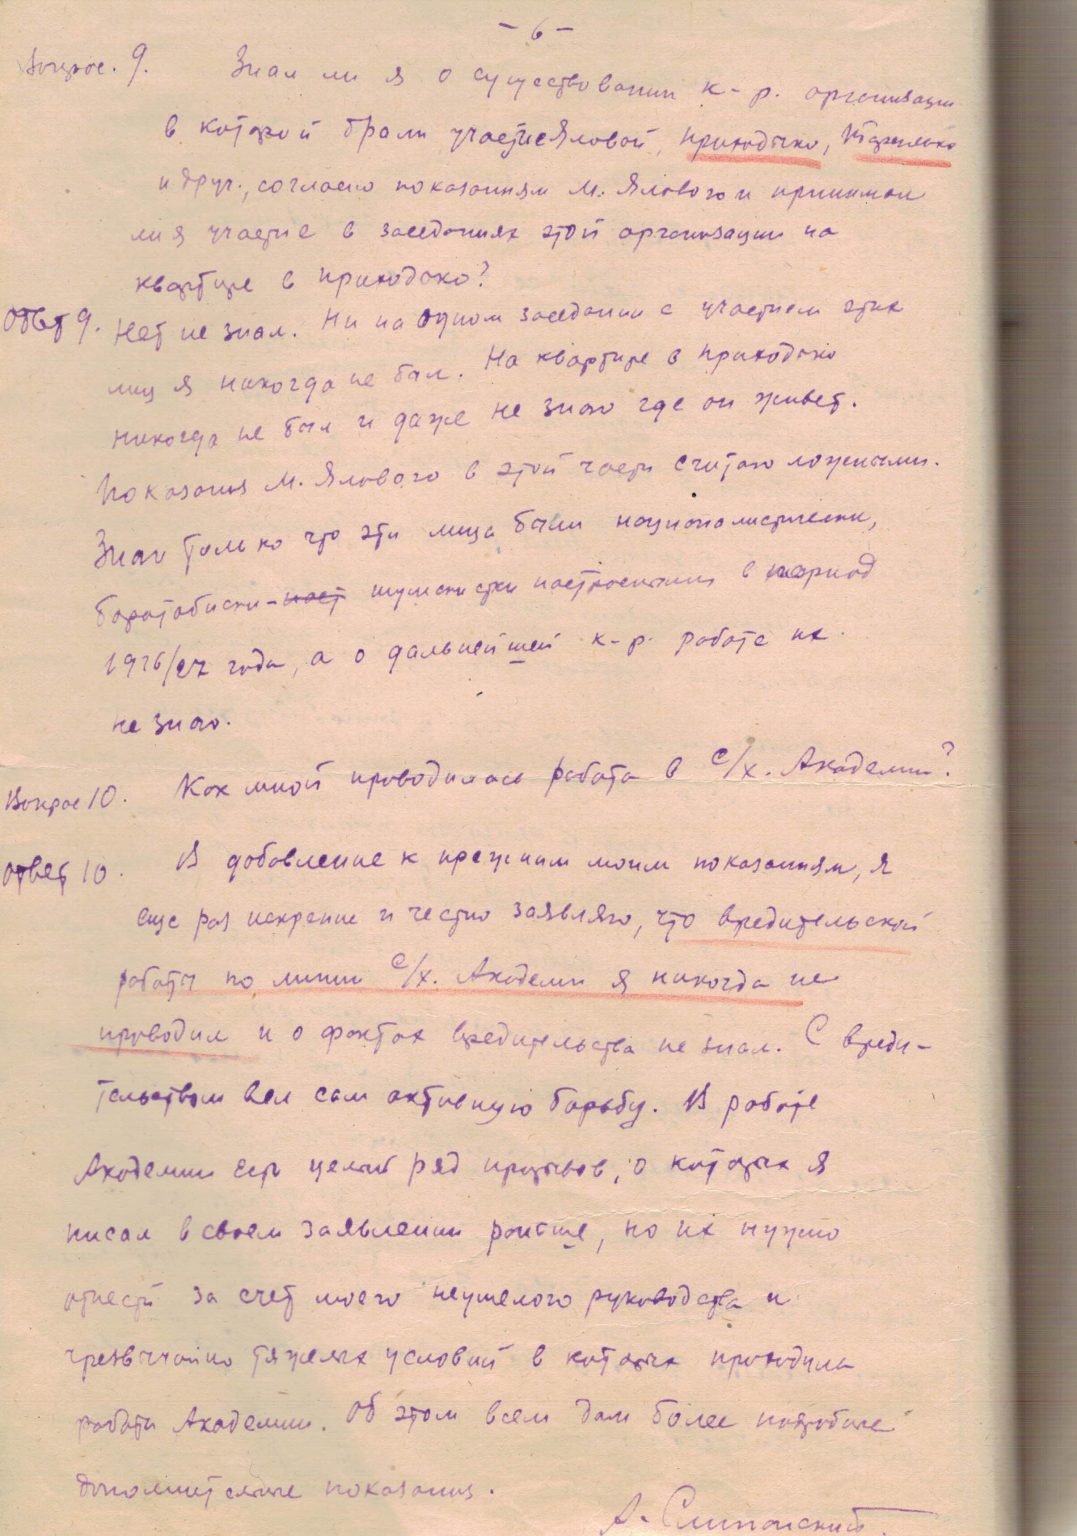 - 6 -
Вопрос. 9. Знал ли я о существовании к-р. организации
в которой брали участие Яловой, Приходько,
и друг., согласно показаниям М. Ялового и принимал
ли я участие в заседаниях этой организации на
квартире в Приходько?
Ответ 9. Нет не знал. Ни на одном заседании с участием этих
лиц я никогда не был. На квартире в Приходько
никогда не был и даже не знаю где он живет.
Показания М. Ялового в этой части считаю ложными.
Знаю только что эти лица были националистически,
боротьбистки-наст шумскистки настроенными в период
1926/27 года, а о дальнейшей к-р. работе их
не знаю.
Вопрос 10. Как мной проводилась работа в с/х. Академии?
Ответ 10. В добавление к прежним моим показаниям, я
еще раз искренне и честно заявляю, что вредительской
работы по линии с/х. Академии я никогда не
проводил и о фактах вредительства не знал. С вреди-
тельством вел сам активную борьбу. В работе
Академии есть целый ряд прорывов, о которых я
писал в своем заявлении раньше, но их нужно
отнести за счет моего неумелого руководства и
чрезвычайно тяжелых условий в которых проходила
работа Академии. Об этом всем дам более подробные
дополнительные показания.
А. Слипанский